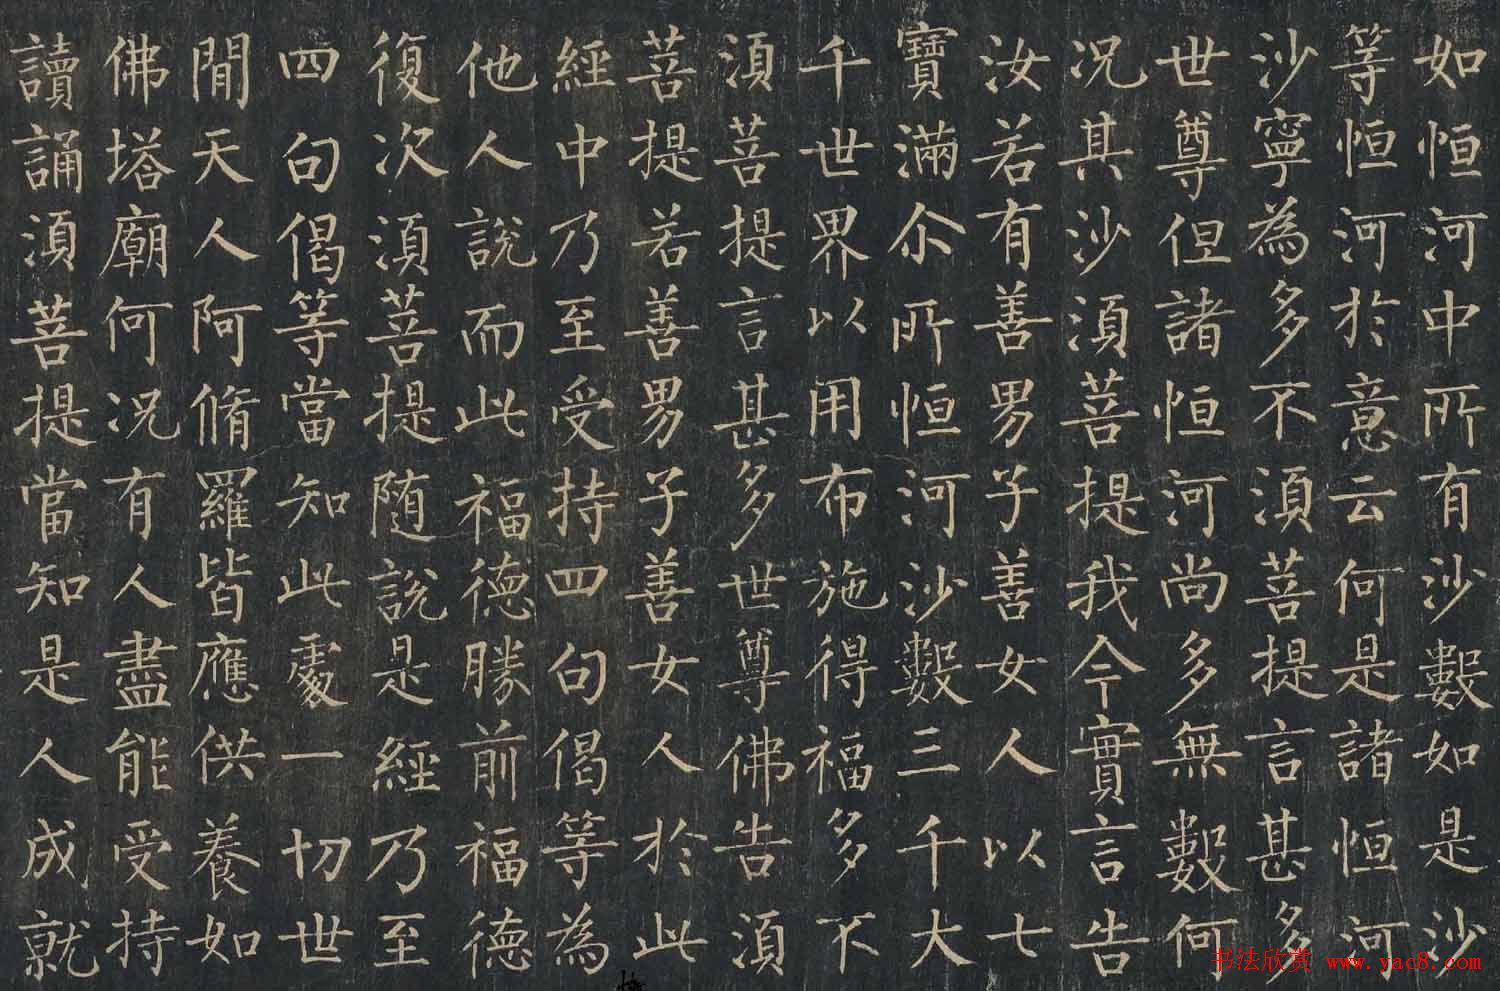 如恒河中所有沙數如是沙
等恒河於意云何是諸恒河
沙寧為多不須菩提言甚多
世尊但諸恒河尚多無數何
況其沙須菩提我今實言告
汝若有善男子善女人以七
寶滿尒所恒河沙數三千大
千世界以用布施得福多不
須菩提言甚多世尊佛告須
菩提若善男子善女人於此
經中乃至受持四句偈等為
他人說而此福德勝前福德
復次須菩提随說是經乃至
四句偈等當知此處一切世
間天人阿脩羅皆應供養如
佛塔廟何況有人盡能受持
讀誦須菩提當知是人成就
书法欣赏 www.yac8.com